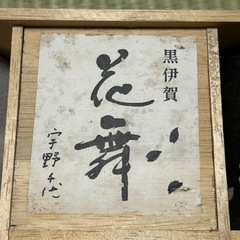 黒伊賀
花舞
宇野千代